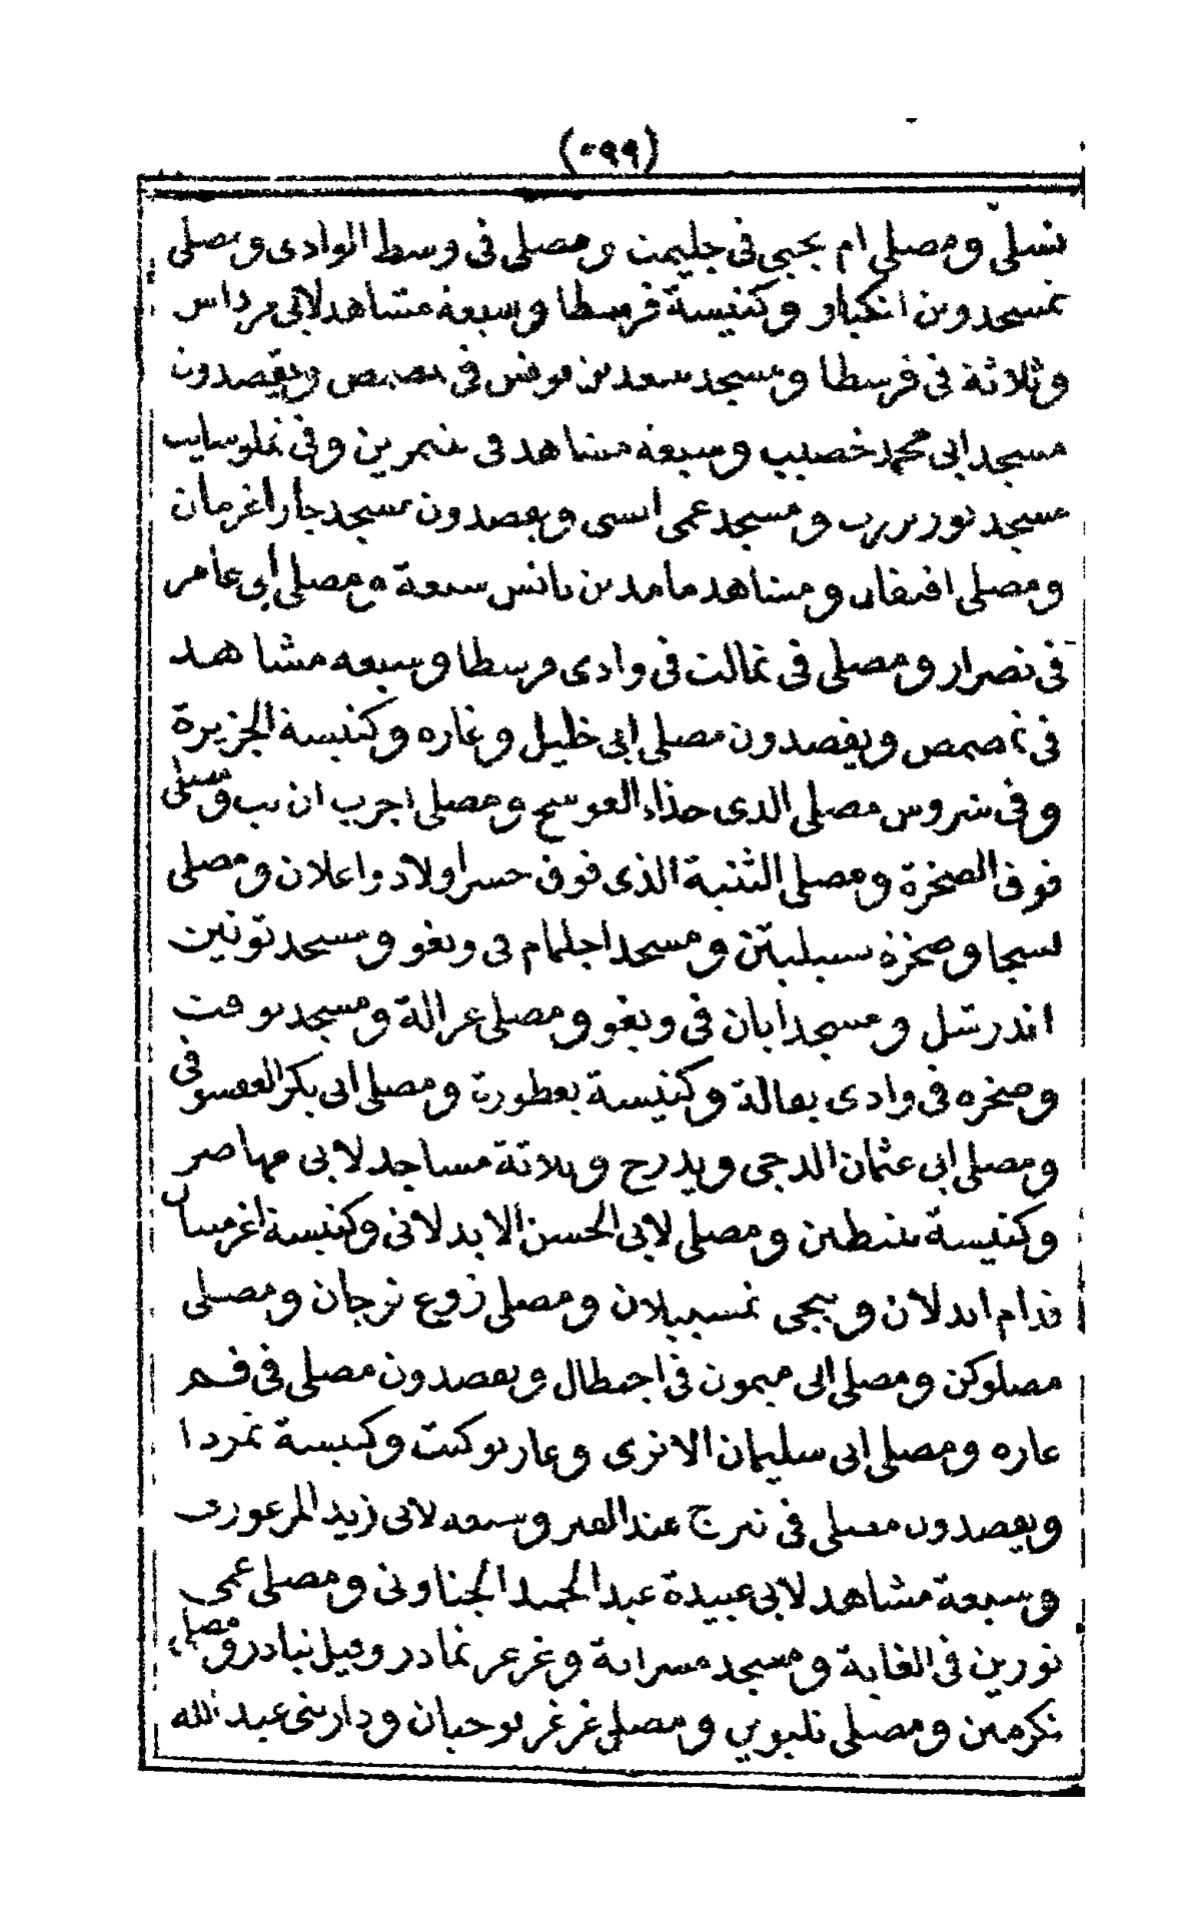 (٥٩٩)
تسلى ومصلى ام يحيى فى جليمت ومصلى فى وسط الوادى ومصلى
تمسجدوين انكباو وكنيسة فرسطا وسبعة مشاهد لابى مرداس
وثلاثة فى فرسطا ومسجد سعد بن يونس فى تمصمص ويقصدون
مسجد ابى محمد خصيب وسبعة مشاهد فى تنمرين وفى تملوسايت
مسجد ومسجد عمى ويقصدون مسجد جار اغرمان
ومصلى ومشاهد مامد بن يانس سبعة ومصلى ابى عامر
فى نصرار ومصلى فى تمالت فى وادى فرسطا وسبعه مشاهد
فى تمصمص ويقصدون مصلى ابى خليل وغاره وكنيسة الجزيرة
وفى شروس مصلى الذى حذاء العوسج ومصلى اجرب ان ومصلى
فوق الصخرة ومصلى الثنية الذى فوق اولاد واعلان ومصلى
وصخرة ومسجد اجلمام فى ويغو ومسجد تونين
اندرشل ومسجد ابان فى ويغو ومصلى غزالة ومسجد توقت
وصخره فى وادى بقالة وكنيسة بعطورة ومصلى ابى بكر الغفسوفى
ومصلى ابى عثمان الدجى ويدرج وثلاثة مساجد لابى مهاصر
وكنيسة ومصلى لابى الحسن الابدلانى وكنيسة اغرميان
قدام ابدلان ويجى ومصلى زوع ترجان ومصلى
مصلوكن ومصلى ابى ميمون فى اجيطال ويقصدون مصلى فى فم
غاره ومصلى ابى سليمان الانرى وغار توكيت وكنيسة تمردا
ويقصدون مصلى فى تيرج عند القبر وسبعه لابى زيد المزغورتى
وسبعة مشاهد لابى عبيدة عبد الحميد الجناونى ومصلى عمى
نورين فى الغابة ومسجد مسراتة وغرغر تمادر وميل تيادر ومصلى
تكرمين ومصلى ومصلى غرغر توحيان ودار بنى عبد الله